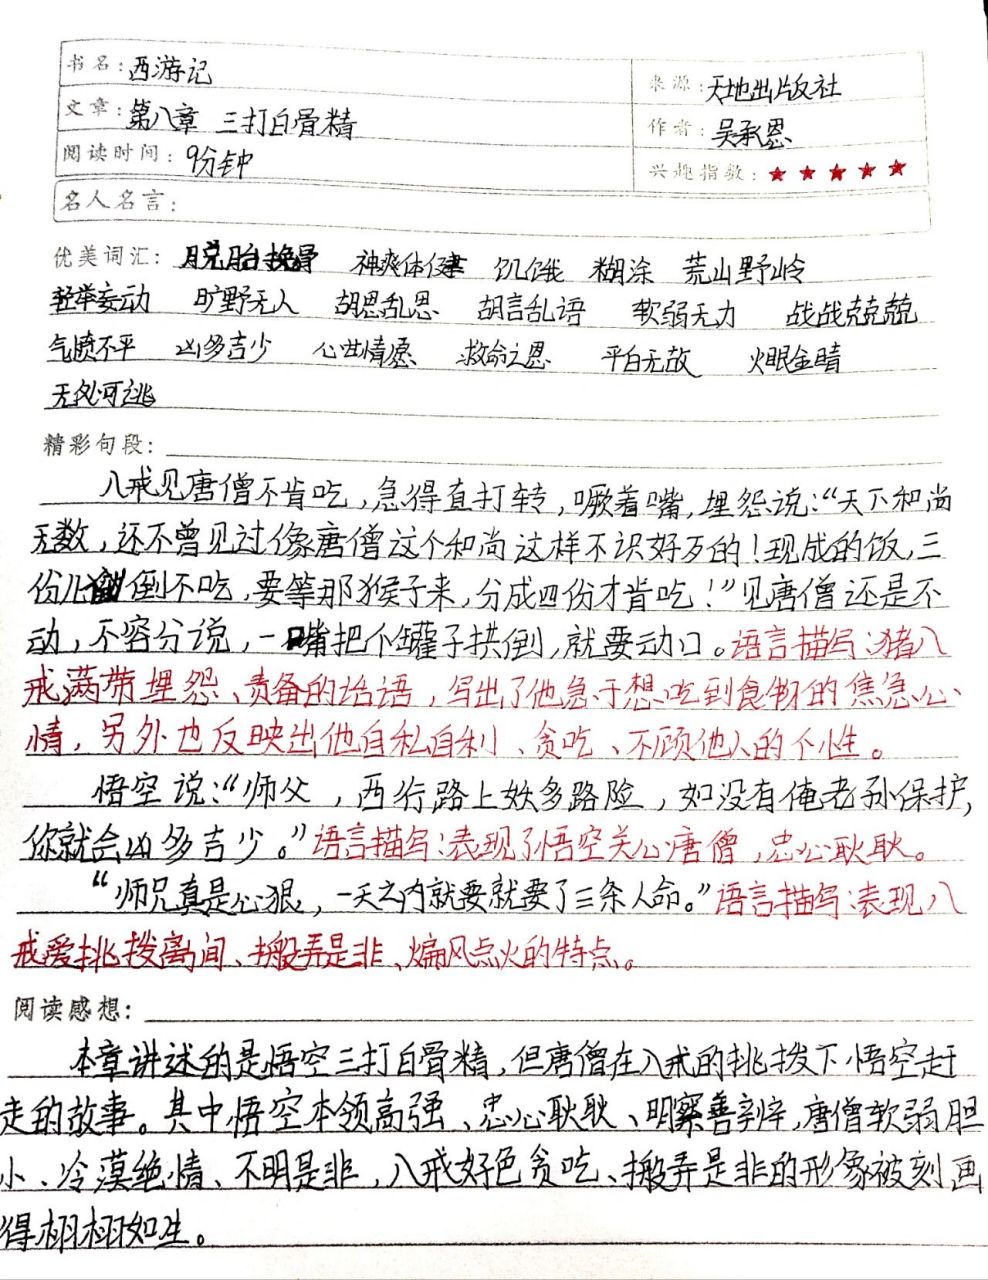 书名：西游记
来源：天地出版社
文章：第八章 三打白骨精
作者：吴承恩
阅读时间：9分钟
兴趣指数：★★★★★
名人名言：
优美词汇：脱胎换骨 神爽体健 饥饿 糊涂 荒山野岭
轻举妄动 旷野无人 胡思乱思 胡言乱语 软弱无力 战战兢兢
气愤不平 凶多吉少 心甘情愿 救命之恩 平白无故 火眼金睛
无处可逃
精彩句段：
八戒见唐僧不肯吃，急得直打转，噘着嘴，埋怨说：“天下和尚
无数，还不曾见过像唐僧这个和尚这样不识好歹的！现成的饭，三
份儿倒不吃，要等那猴子来，分成四份才肯吃！”见唐僧还是不
动，不容分说，一嘴把个罐子拱倒，就要动口。语言描写：猪八
戒满带埋怨、责备的话语，写出了他急于想吃到食物的焦急心
情，另外也反映出他自私自利、贪吃、不顾他人的个性。
悟空说：“师父，西行路上妖多路险，如没有俺老孙保护，
你就会凶多吉少。”语言描写：表现了悟空关心唐僧，忠心耿耿。
“师兄真是心狠，一天之内就要就要了三条人命。”语言描写：表现八
戒爱挑拨离间、搬弄是非、煽风点火的特点。
阅读感想：
本章讲述的是悟空三打白骨精，但唐僧在八戒的挑拨下悟空赶
走的故事。其中悟空本领高强、忠心耿耿、明察善辨，唐僧软弱胆
小、冷漠绝情、不明是非，八戒好色贪吃、搬弄是非的形象被刻画
得栩栩如生。